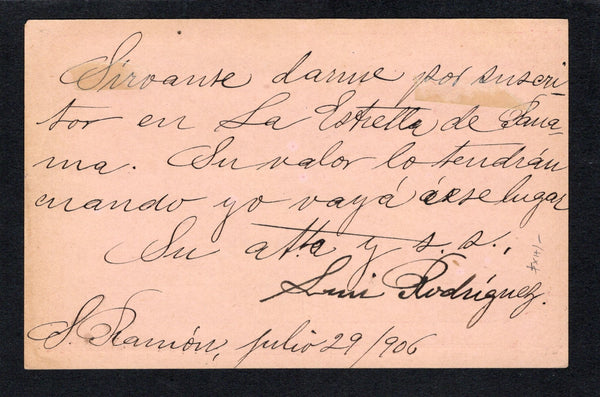 Sírvanse darme por suscri-
tor en La Estrella de Pana-
ma. Su valor lo tendrán
cuando yo vayá á ese lugar
Su atta y s. s.,
Luis Rodríguez.
S. Ramón, julio 29/906